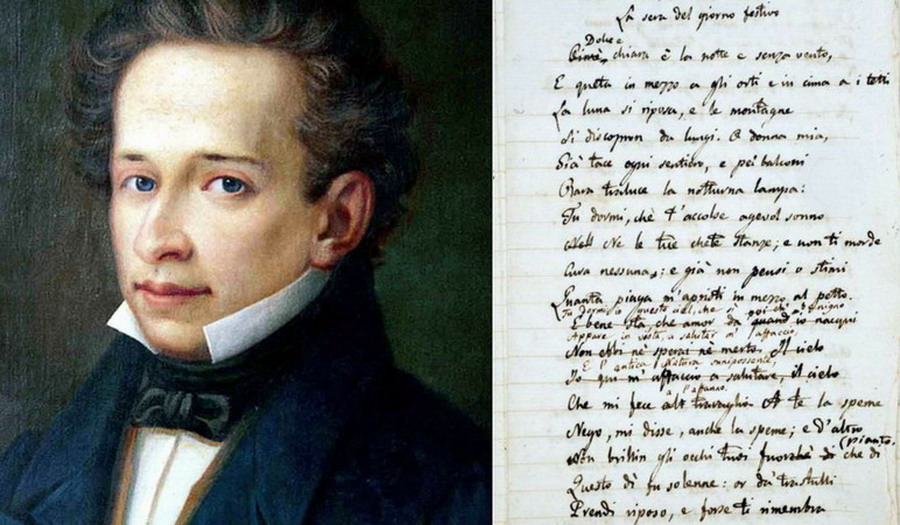 La sera del giorno festivo
Dolce e
Oimè, chiara è la notte e senza vento,
E queta in mezzo a gli orti e in cima a i tetti
La luna si riposa, e le montagne
Si discopron da lungi. O donna mia,
Già tace ogni sentiero, e pei balconi
Rara traluce la notturna lampa:
Tu dormi, chè t'accolse agevol sonno
Ne le tue chete stanze; e non ti morde
Cura nessuna; e già non pensi o stimi
Quanta piaga m'apristi in mezzo al petto.
Tu dormi: io questo ciel, che sì benigno
E bene sta, che amor da quand'io nacqui
Appare in vista, a salutar m'affaccio,
Non ebbi nè sperai nè merto. Il cielo
E l'antica natura onnipossente,
Io qui m'affaccio a salutare, il cielo
a l'affanno.
Che mi fece al travaglio. A te la speme
Nego, mi disse, anche la speme; e d'altro
pianto.
Non brillin gli occhi tuoi fuorchè di che di
Questo dì fu solenne: or da' trastulli
Prendi riposo, e forse ti rimembra